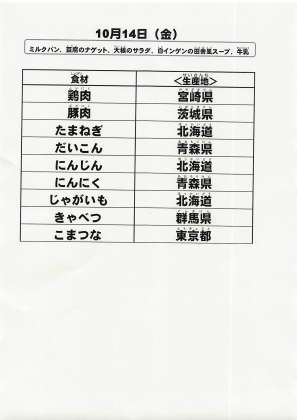 10月14日（金）
ミルクパン、豆腐のナゲット、大根のサラダ、白インゲンの田舎風スープ、牛乳
食材 ＜生産地＞
鶏肉 宮崎県
豚肉 茨城県
たまねぎ 北海道
だいこん 青森県
にんじん 北海道
にんにく 青森県
じゃがいも 北海道
きゃべつ 群馬県
こまつな 東京都